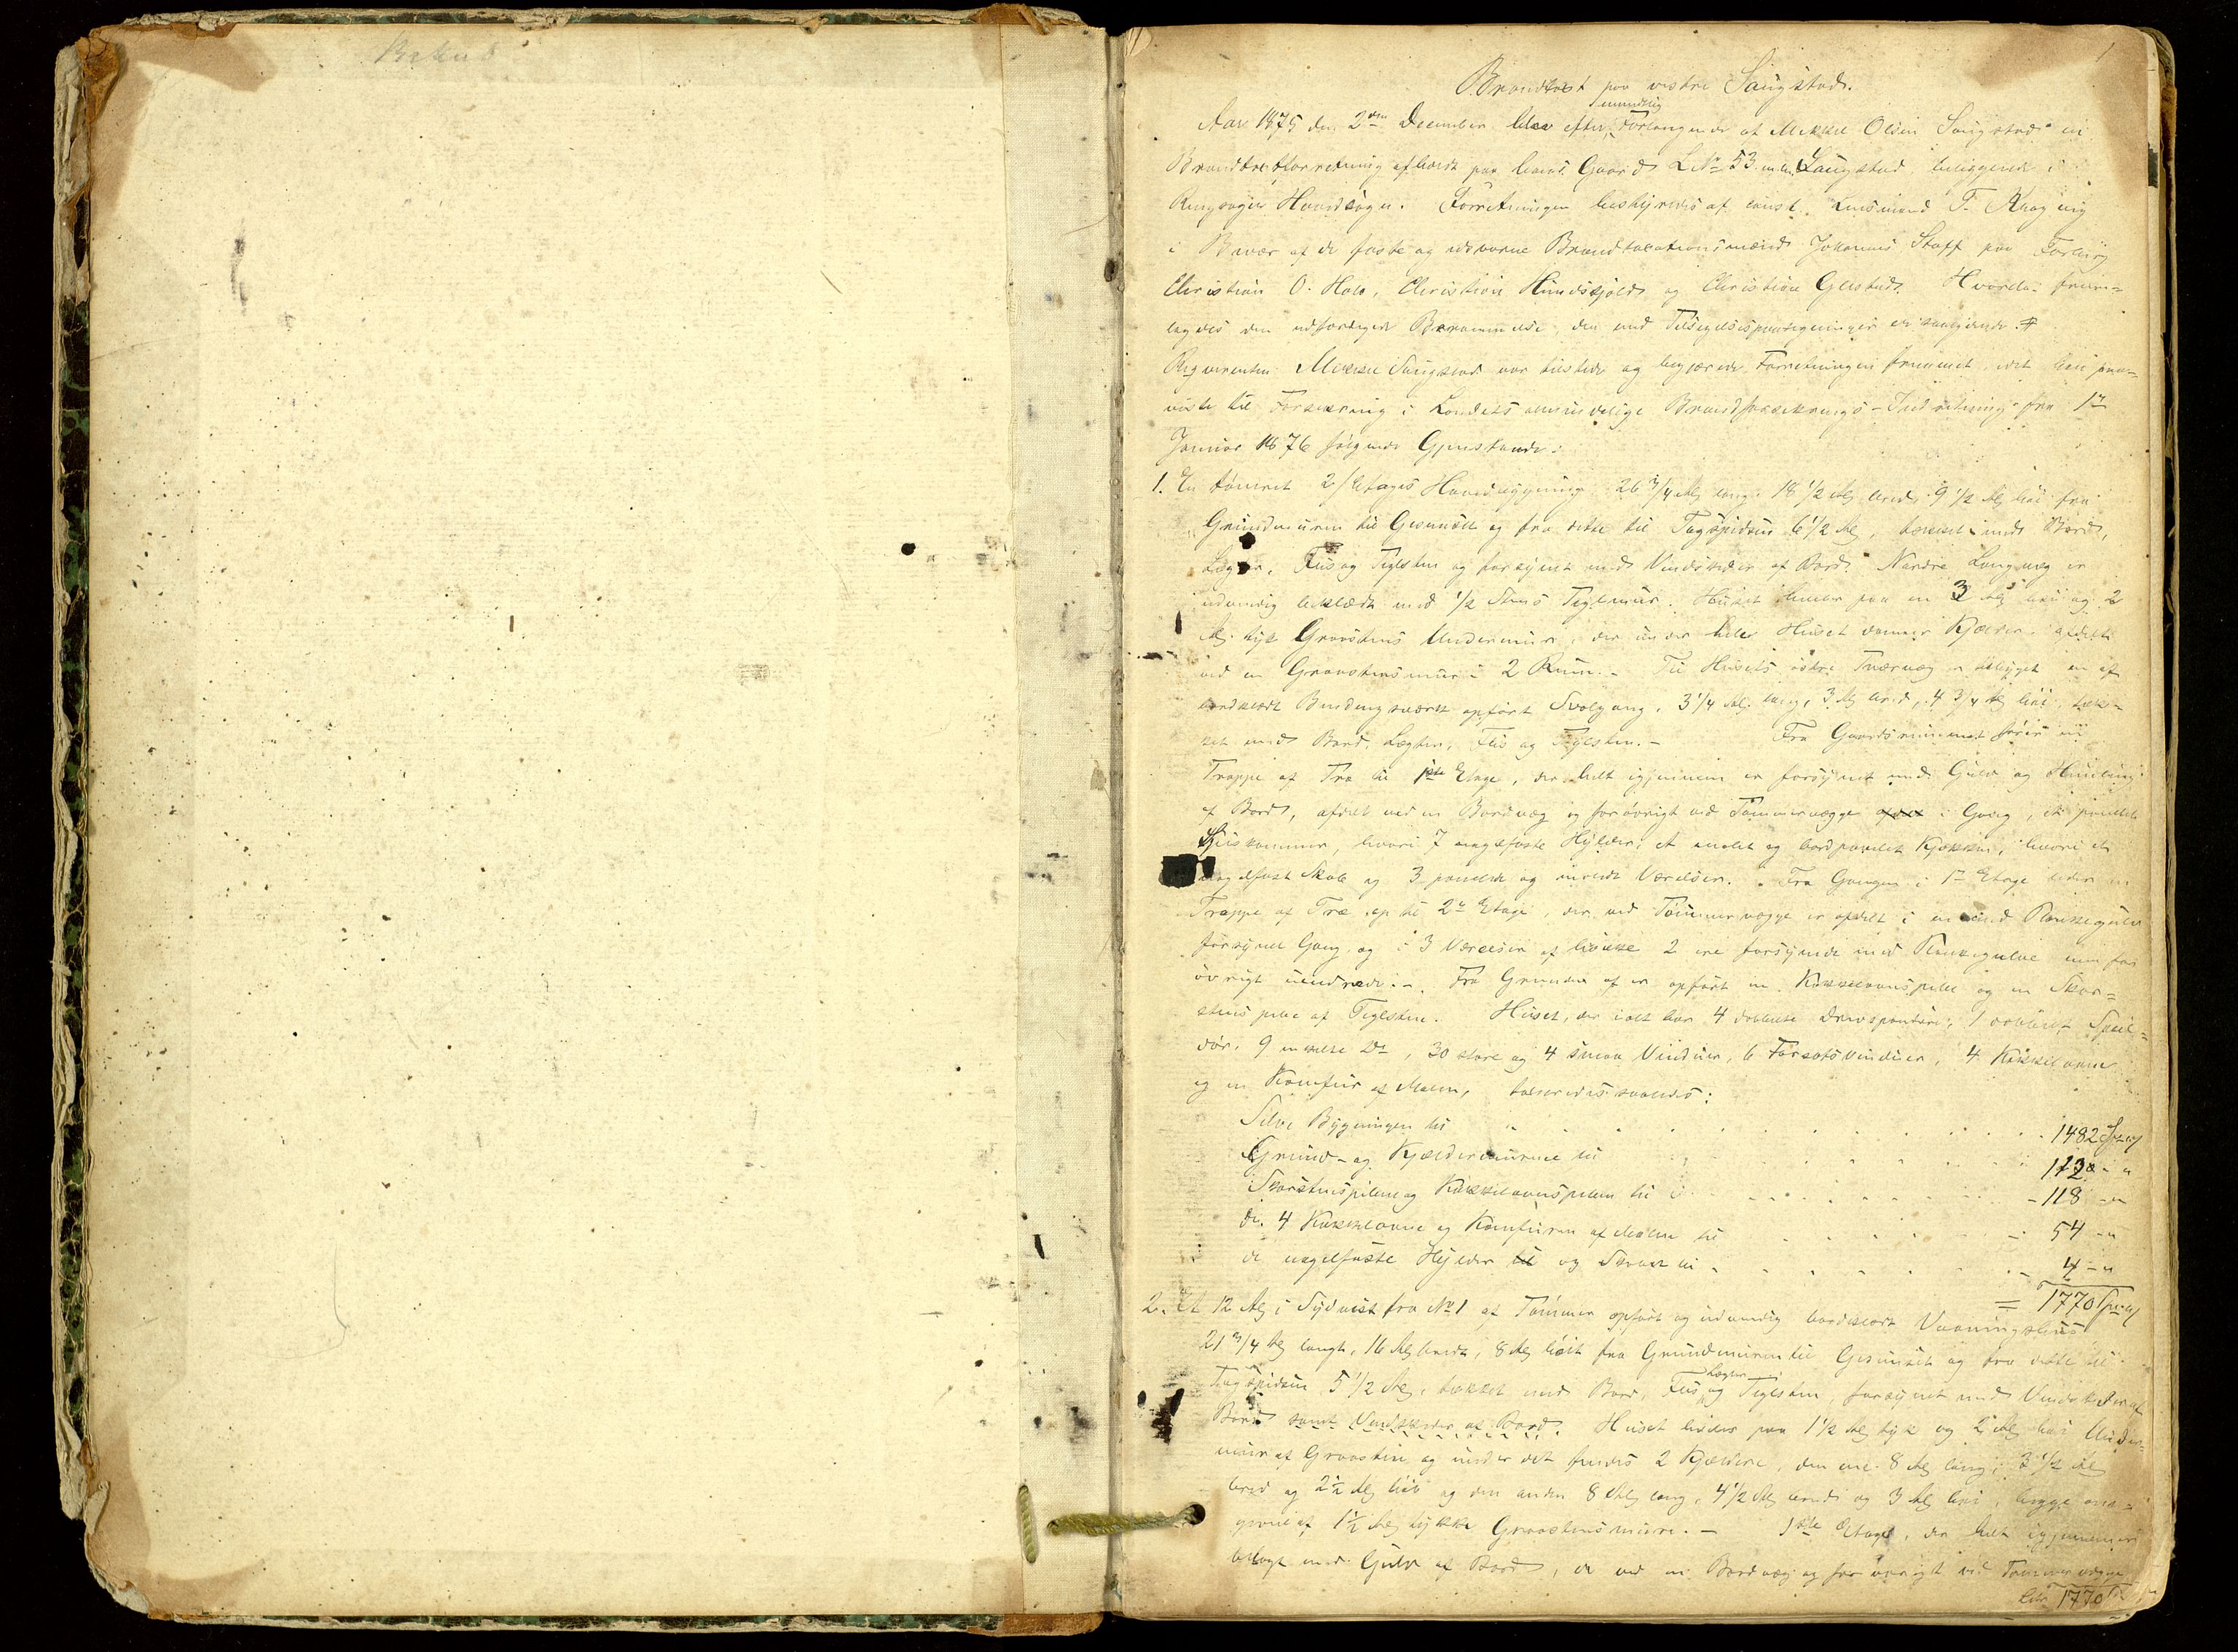 1
Brandtaxt paa vestre Saugstad.
mundtlig
Aar 1875 den 2den December blev efter Forlangende af Mikkel Olsen Saugstad en
Brandtaxtforretning afholdt paa hans Gaard L.No 53 Saugstad, beliggende i
Ringsager Hovedsogn. Forretningen bestyredes af const. Lensmand T. Krog
i Nævær af de faste og edsvorne Brandtaxationsmænd Johannes Staff paa Forberg
Christian O. Holo, Christian Hundskjold og Christian Gjestad. Hvorda frem=
lagdes den udfærdigede Berammelse, den med Tilsigelsespaategninger er saalydende #
Reqvirenten Mikkel Saugstad var tilstede og begjærede Forretningen fremmet, idet han paa=
viste til Forsikring i Landets almindelige Brandforsikrings-Indretning fra 1ste
Januar 1876 følgende Gjenstande:
1. En tømret 2 Etages Hovedbygning 26 3/4 Al. lang, 18 1/2 Al. bred, 9 1/2 Al. høi fra
Grundmuren til Gesimsen og fra dette til Tagspidsen 6 1/2 Al, tækket med Bord,
Lægter, Flis og Teglsten og forsynet med Vindskeder af Bord. Nordre Langvæg er
udvendig beklædt med 1/2 Stens Teglmur. Huset hviler paa en 3 Al. høi og 2
Al. tyk Graastens Undermur, der under hele Huset danner Kjælder, afdelt
ved en Graastensmur i 2 Rum. - Til Husets østre Tværvæg er tilbygget en af
bordklædt Bindingsværk opført Svalgang, 3 1/4 Al. lang, 3 Al. bred, 4 3/4 Al. høi, tæk=
ket med Bord, Lægter, Flis og Teglsten. - Fra Gaardsrummet fører en
Trappe af Træ til 1ste Etage, der helt igjennem er forsynet med Gulv og Himling
af Bord, afdelt ved en Bordvæg og forøvrigt ved Tømmervægge i Gang, et panelet
Spiskammer, hvori 7 nagelfaste Hylder, et malet og bordpanelet Kjøkken, hvori et
nagelfast Skab og 3 panelede og malede Værelser. Fra Gangen i 1ste Etage leder en
Trappe af Træ op til 2den Etage, der ved Tømmervægge er afdelt i en med Plankegulv
forsynet Gang og i 3 Værelser af hvilke 2 ere forsynede med Plankegulve men for
øvrigt uindredede. - Fra Grunden af er opført en Kakkelovnspibe og en Skor=
stenspibe af Teglsten. Huset, der ialt har 4 dobbelte Dørre, 1 dobbelt Speil=
dør, 9 enkelte Do, 30 store og 4 smaa Vinduer, 6 Forsatsvinduer, 4 Kakkelovne
og en Komfur af Malm, taxeredes saaledes:
Selve Bygningen til 1482 Spd
Grund- og Kjældermurene til 112 - "
Skorstenspiben og Kakkelovnspiben til 118 - "
de 4 Kakkelovne og Komfuren af Malm til 54 - "
de nagelfaste Hylder til og Skab til 4 - "
= 1770 Spd
2. Et 12 Al. i Sydvest fra No 1 af Tømmer opført og udvendig bordklædt Vaaningshus
21 3/4 Al. langt, 16 Al. bredt, 8 Al. høit fra Grundmuren til Gesimset og fra dette til
Lægter
Tagspidsen 5 1/2 Al., tækket med Bord, Flis og Teglsten, forsynet med Vindskeder af
Bord samt Vindskeder af Bord. Huset hviler paa 1 1/2 Al. tyk og 2 Al. høi Under=
mur af Graasten og under det findes 2 Kjældere, den ene 8 Al. lang, 3 1/2 Al.
bred og 2 1/2 Al. høi og den anden 8 Al. lang, 4 1/2 Al. bred og 3 Al. høi, begge om=
givne af 1 1/2 Al. tykke Graastensmure. - 1ste Etage, der helt igjennem er
belagt med Gulv af Bord, er ved en Bordvæg og for øvrigt ved Tømmervægge
Lat. 1770 Spd